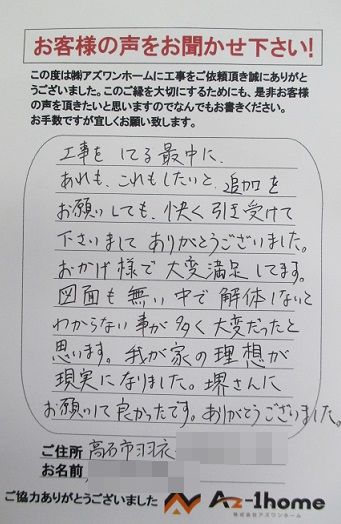 お客様の声をお聞かせ下さい!
この度は㈱アズワンホームに工事をご依頼頂き誠にありがと
うございました。このご縁を大切にするためにも、是非お客様
の声を頂きたいと思いますのでなんでもお書きください。
お手数ですが宜しくお願い致します。
工事をしてる最中に、
あれも、これもしたいと、追加を
お願いしても、快く引き受けて
下さいまして ありがとうございました。
おかげ様で大変満足してます。
図面も無い中で解体しないと
わからない事が多く大変だったと
思います。我が家の理想が
現実になりました。堺さんに
お願いして良かったです。ありがとうございました。
ご住所 高石市羽衣
お名前
ご協力ありがとうございました Az-1home
株式会社アズワンホーム